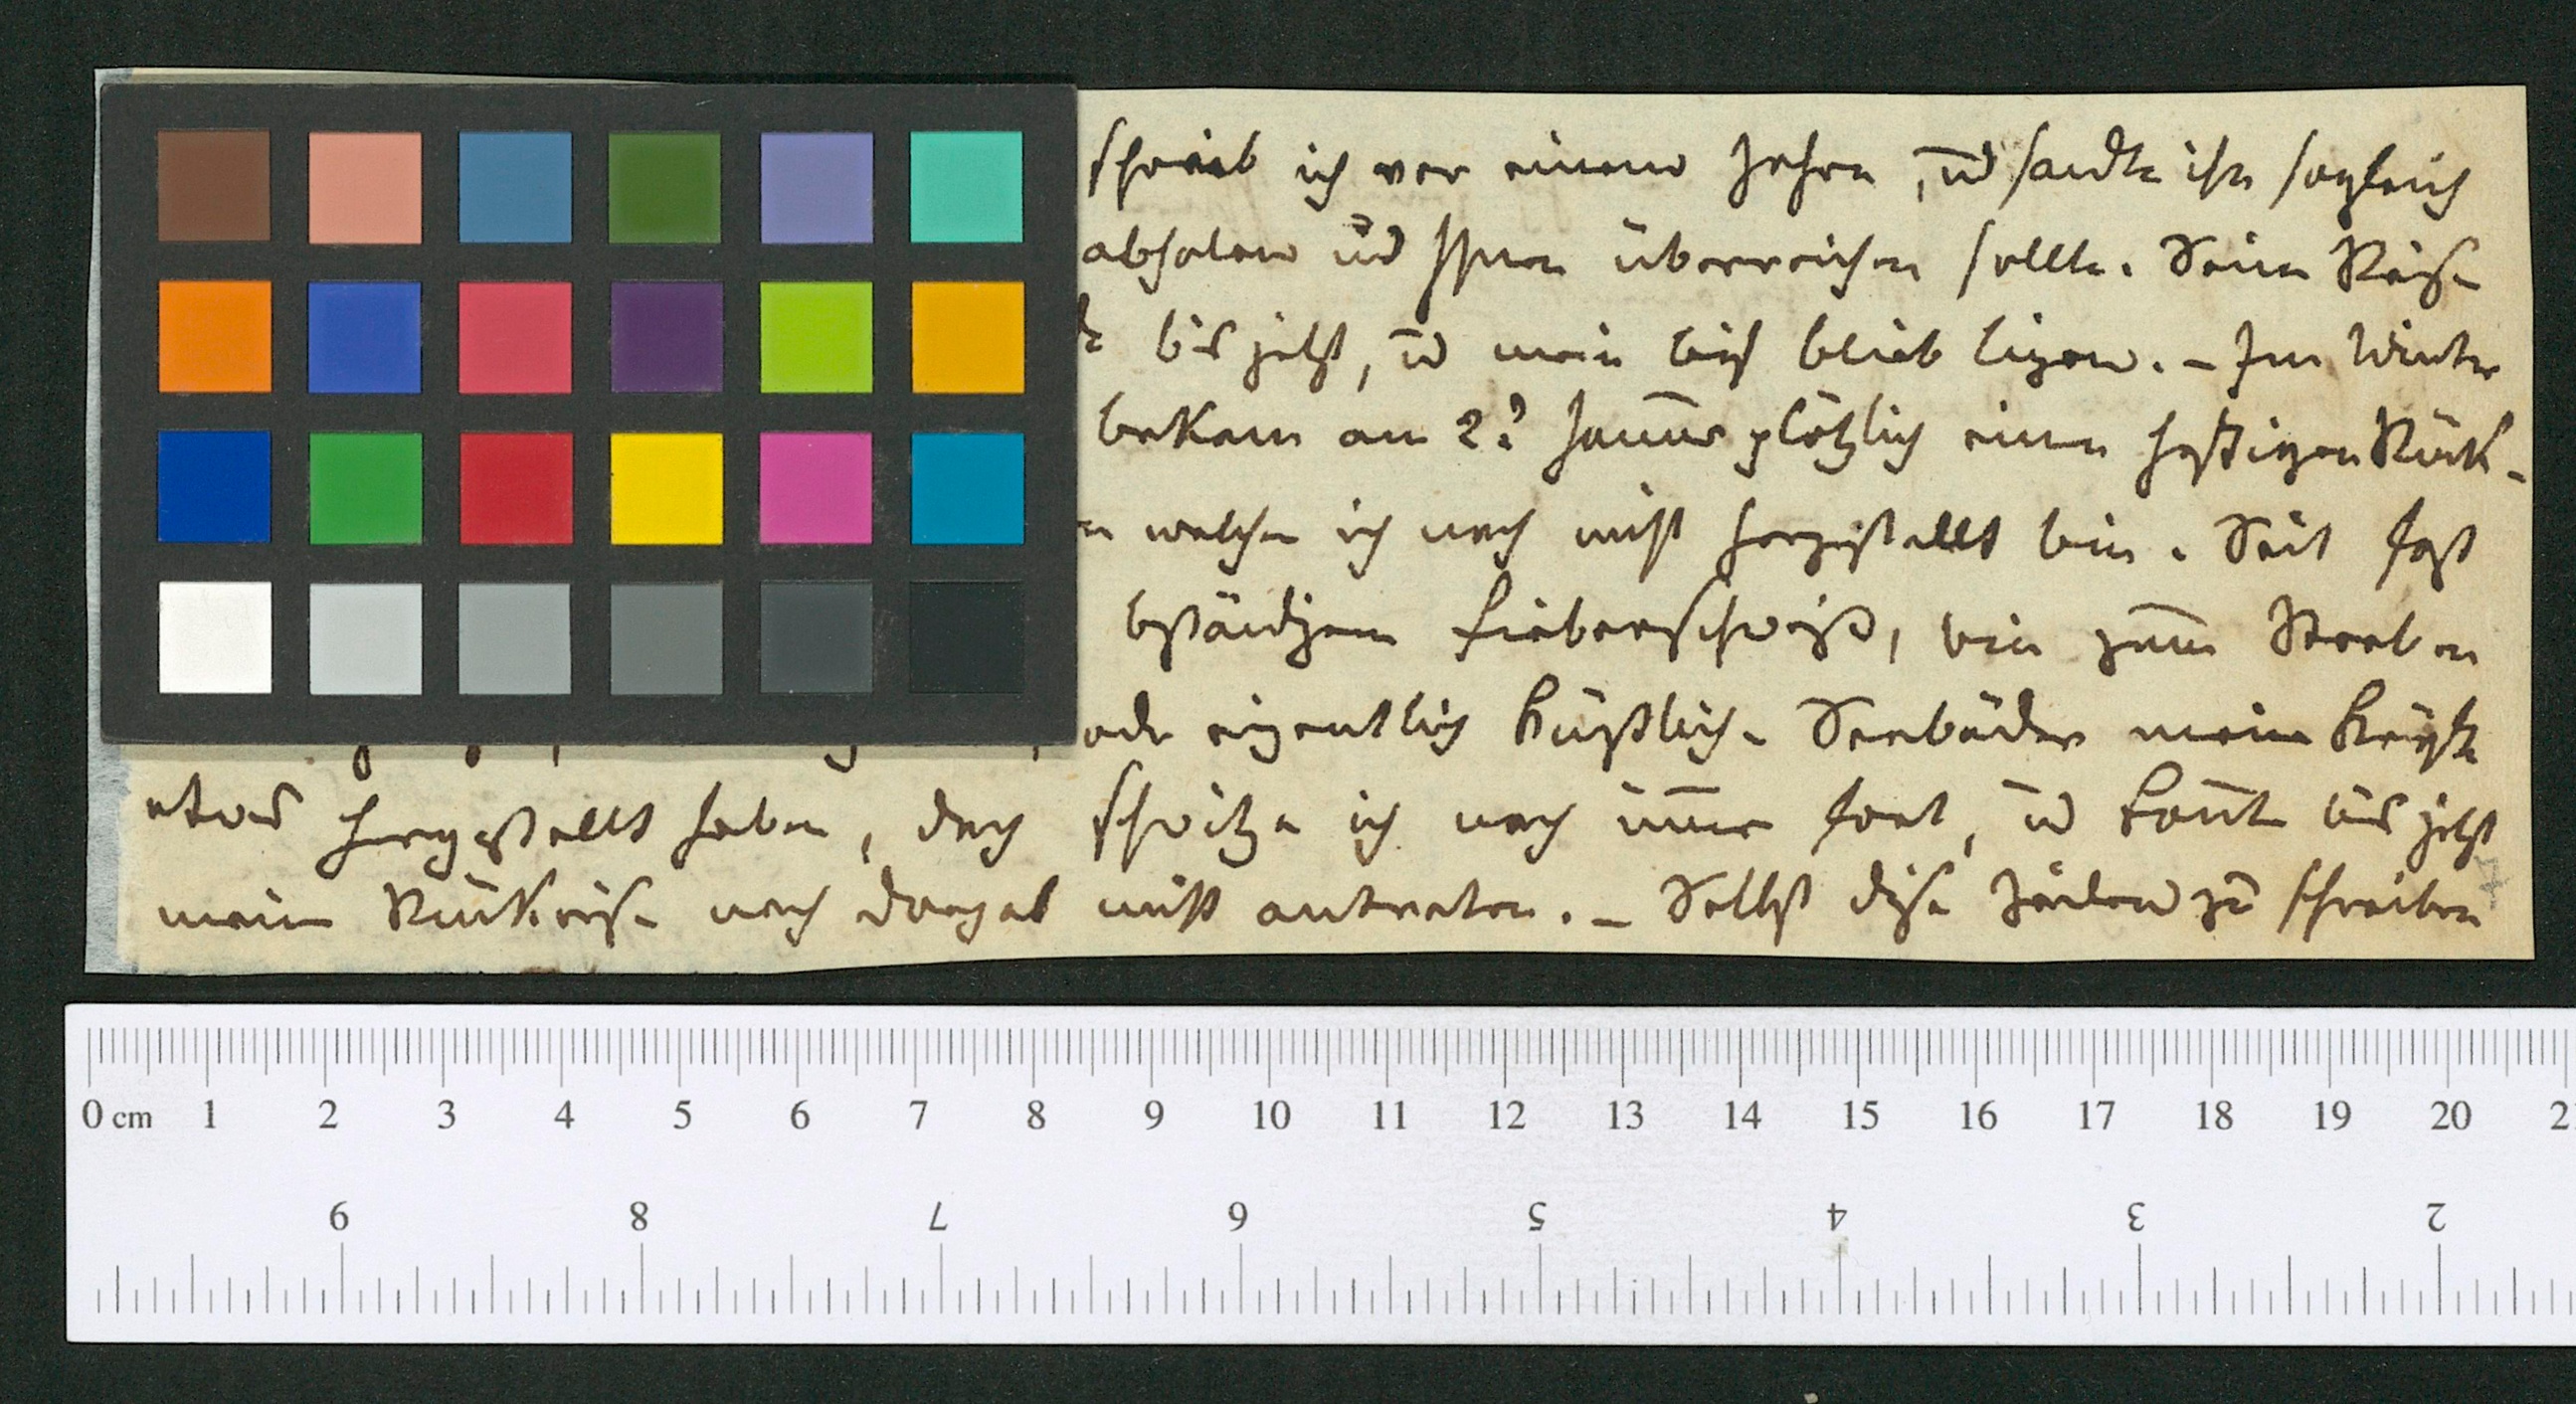 schrieb ich vor einem Jahre, ūd sandte ihn sogleich
abholen ūd Ihnen überreichen sollte. Seine Reise
bis jetzt, ūd mein Brief blieb liegen. – Im Winter
bekam am 2? Janūar plötzlich einen heftigen Rück-
welchen ich noch nicht hergestellt bin. Seit fast
beständigem Fieberschweiß, bin zum Sterben
oder eigentlich künstliche Seebäder meine Kräfte
etwas hergestellt haben, doch schwitze ich noch im̄er fort, ūd kon̄te bis jetzt
meine Rückreise nach Dorpat nicht antreten. – Selbst diese Zeilen zu schreiben
0 cm 1 2 3 4 5 6 7 8 9 10 11 12 13 14 15 16 17 18 19 20 2
9 8 7 6 5 4 3 2